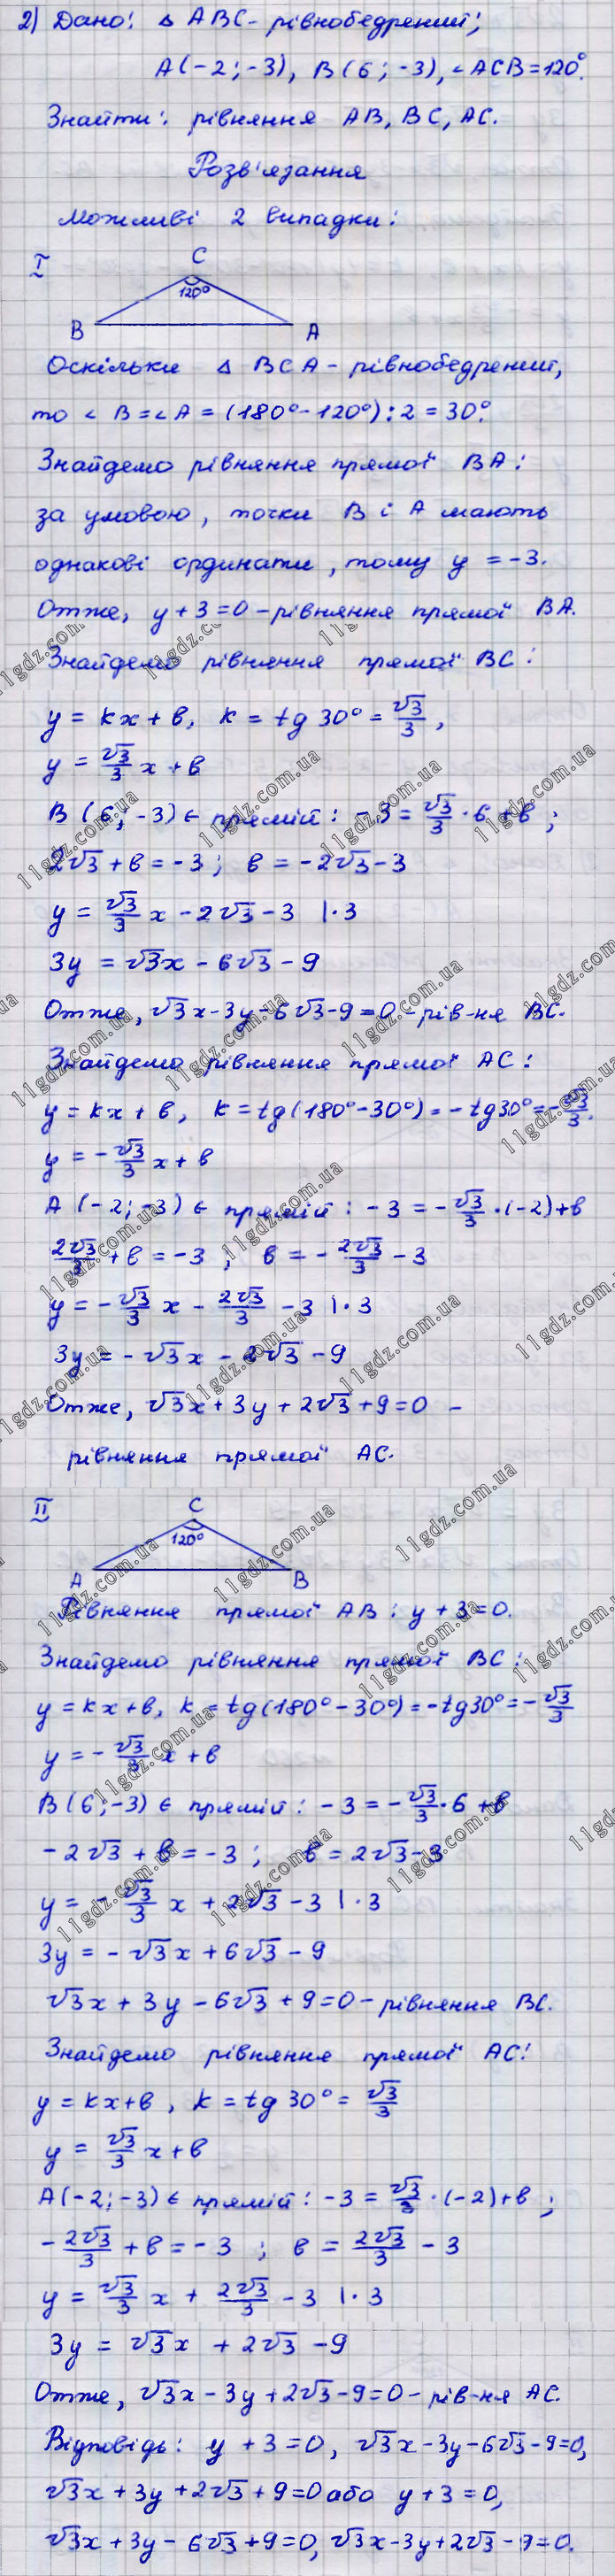 2) Дано: △ ABC - рівнобедрений;
A(-2; -3), B(6; -3), ∠ACB = 120°.
Знайти: рівняння AB, BC, AC.
Розв'язання
Можливі 2 випадки:
I
C
120°
B A
Оскільки △ BCA - рівнобедрений,
то ∠B = ∠A = (180° - 120°) : 2 = 30°.
Знайдемо рівняння прямої BA:
за умовою, точки B і A мають
однакові ординати, тому y = -3.
Отже, y + 3 = 0 - рівняння прямої BA.
Знайдемо рівняння прямої BC:
y = kx + b, k = tg 30° = √3/3,
y = √3/3 x + b
B (6; -3) ∈ прямій: -3 = √3/3 · 6 + b;
2√3 + b = -3; b = -2√3 - 3
y = √3/3 x - 2√3 - 3 | · 3
3y = √3x - 6√3 - 9
Отже, √3x - 3y - 6√3 - 9 = 0 - рів-ня BC.
Знайдемо рівняння прямої AC:
y = kx + b, k = tg(180° - 30°) = -tg30° = -√3/3.
y = -√3/3 x + b
A (-2; -3) ∈ прямій: -3 = -√3/3 · (-2) + b
2√3/3 + b = -3, b = -2√3/3 - 3
y = -√3/3 x - 2√3/3 - 3 | · 3
3y = -√3x - 2√3 - 9
Отже, √3x + 3y + 2√3 + 9 = 0 -
рівняння прямої AC.
II
C
120°
A B
Рівняння прямої AB: y + 3 = 0.
Знайдемо рівняння прямої BC:
y = kx + b, k = tg(180° - 30°) = -tg30° = -√3/3
y = -√3/3 x + b
B(6; -3) ∈ прямій: -3 = -√3/3 · 6 + b
-2√3 + b = -3; b = 2√3 - 3
y = -√3/3 x + 2√3 - 3 | · 3
3y = -√3x + 6√3 - 9
√3x + 3y - 6√3 + 9 = 0 - рівняння BC.
Знайдемо рівняння прямої AC:
y = kx + b, k = tg 30° = √3/3
y = √3/3 x + b
A(-2; -3) ∈ прямій: -3 = √3/3 · (-2) + b;
-2√3/3 + b = -3; b = 2√3/3 - 3
y = √3/3 x + 2√3/3 - 3 | · 3
3y = √3x + 2√3 - 9
Отже, √3x - 3y + 2√3 - 9 = 0 - рів-ня AC.
Відповідь: y + 3 = 0, √3x - 3y - 6√3 - 9 = 0,
√3x + 3y + 2√3 + 9 = 0 або y + 3 = 0,
√3x + 3y - 6√3 + 9 = 0, √3x - 3y + 2√3 - 9 = 0.
11gdz.com.ua